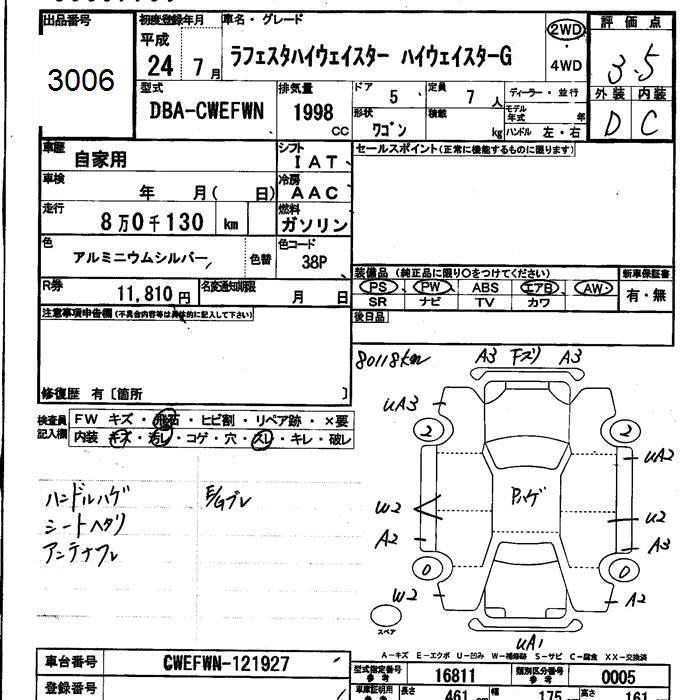 出品番号
3006
初度登録年月
平成
24 7月
車名・グレード
ラフェスタハイウェイスター ハイウェイスターG
2WD
・
4WD
評価点
3.5
外装 内装
D C
型式
DBA-CWEFWN
排気量
1998
CC
ドア
5
定員
7 人
形状
ワゴン
積載
kg
ディーラー・並行
モデル年式 年
ハンドル 左・右
車歴
自家用
シフト
IAT
セールスポイント(正常に機能するものに限ります)
車検
年 月( 日)
冷房
AAC
走行
8万0千130 km
燃料
ガソリン
色
アルミニウムシルバー
色替
色コード
38P
装備品(純正品に限り○をつけてください)
PS PW ABS エアB AW
SR ナビ TV カワ
新車保証書
有・無
R券
11,810円
名変通知期限
月 日
後日品
注意事項申告欄(不具合内容等は具体的に記入して下さい)
修復歴 有〔箇所 〕
検査員
記入欄
FW キズ・飛石・ヒビ割・リペア跡・×要
内装 キズ・汚レ・コゲ・穴・スレ・キレ・破レ
ハンドルハゲ
シートヘタリ
アンテナフレ
E/Gブレ
80118km
A3 下ズリ A3
UA3
2
2
UA2
W2
Pハゲ
U2
A2
A3
0
0
W2
A2
スペア
UA1
A-キズ E-エクボ U-凹み W-補修跡 S-サビ C-腐食 XX-交換済
車台番号
CWEFWN-121927
登録番号
型式指定番号
参考
16811
類別区分番号
参考
0005
車庫証明用
参考
長さ
461 cm
幅
175 cm
高さ
161 cm